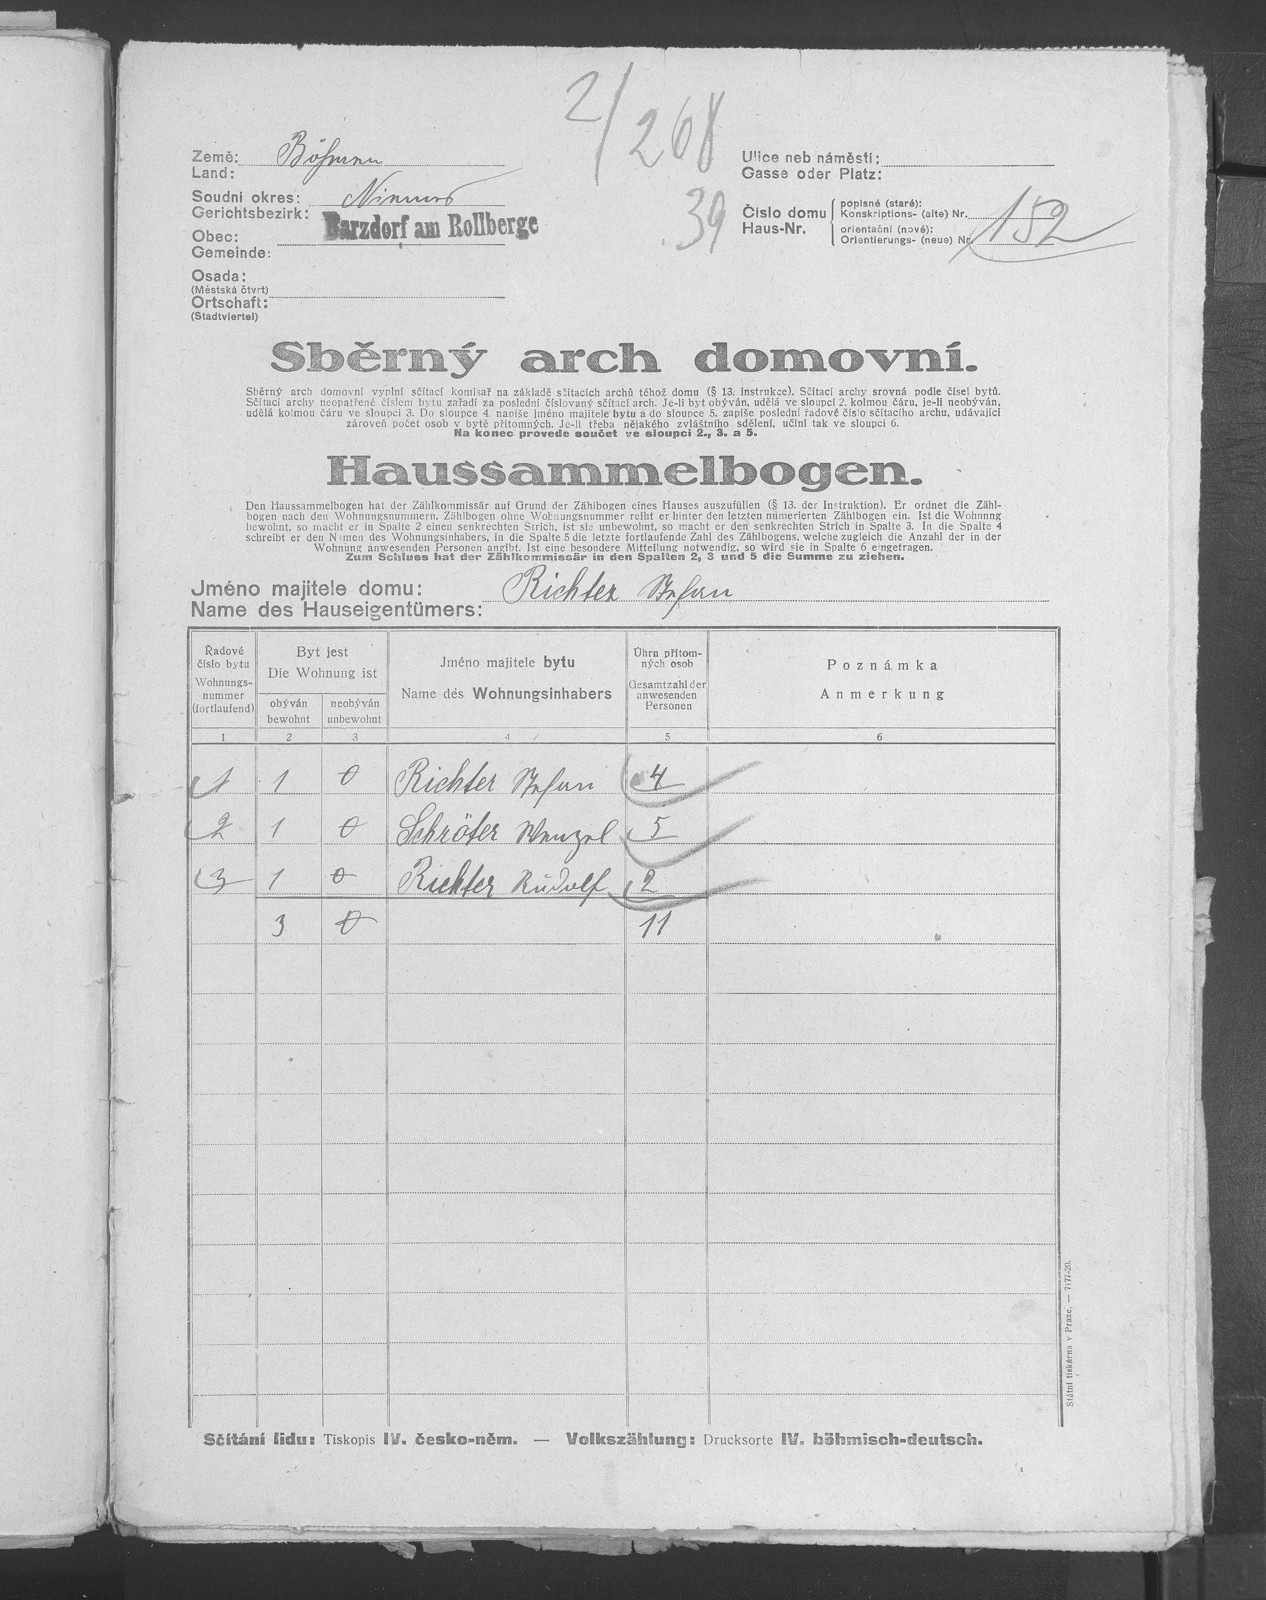 2/268
39
Země: Böhmen
Land:
Soudní okres: Niemes
Gerichtsbezirk:
Barzdorf am Rollberge
Obec:
Gemeinde:
Osada:
(Městská čtvrt)
Ortschaft:
(Stadtviertel)
Ulice neb náměstí:
Gasse oder Platz:
Číslo domu
Haus-Nr.
popisné (staré):
Konskriptions- (alte) Nr.
orientační (nové):
Orientierungs- (neue) Nr.
152
Sběrný arch domovní.
Sběrný arch domovní vyplní sčítací komisař na základě sčítacích archů téhož domu (§ 13. instrukce). Sčítací archy srovná podle čísel bytů.
Sčítací archy neopatřené číslem bytu zařadí za poslední číslovaný sčítací arch. Je-li byt obýván, udělá ve sloupci 2. kolmou čáru, je-li neobýván,
udělá kolmou čáru ve sloupci 3. Do sloupce 4. napíše jméno majitele bytu a do sloupce 5. zapíše poslední řadové číslo sčítacího archu, udávající
zároveň počet osob v bytě přítomných. Je-li třeba nějakého zvláštního sdělení, učiní tak ve sloupci 6.
Na konec provede součet ve sloupci 2., 3. a 5.
Haussammelbogen.
Den Haussammelbogen hat der Zählkommissär auf Grund der Zählbogen eines Hauses auszufüllen (§ 13. der Instruktion). Er ordnet die Zähl-
bogen nach den Wohnungsnummern. Zählbogen ohne Wohnungsnummer reiht er hinter den letzten numerierten Zählbogen ein. Ist die Wohnung
bewohnt, so macht er in Spalte 2 einen senkrechten Strich, ist sie unbewohnt, so macht er den senkrechten Strich in Spalte 3. In die Spalte 4
schreibt er den Namen des Wohnungsinhabers, in die Spalte 5 die letzte fortlaufende Zahl des Zählbogens, welche zugleich die Anzahl der in der
Wohnung anwesenden Personen angibt. Ist eine besondere Mitteilung notwendig, so wird sie in Spalte 6 eingetragen.
Zum Schluss hat der Zählkommissär in den Spalten 2, 3 und 5 die Summe zu ziehen.
Jméno majitele domu: Richter Stefan
Name des Hauseigentümers:
Řadové
číslo bytu
Wohnungs-
nummer
(fortlaufend)
Byt jest
Die Wohnung ist
obýván
bewohnt
neobýván
unbewohnt
Jméno majitele bytu
Name des Wohnungsinhabers
Úhrn přítom-
ných osob
Gesamtzahl der
anwesenden
Personen
Poznámka
Anmerkung
1 2 3 4 5 6
1 1 0 Richter Stefan 4
2 1 0 Schröter Wenzel 5
3 1 0 Richter Rudolf 2
3 0 11
Státní tiskárna v Praze. — 7177-20.
Sčítání lidu: Tiskopis IV. česko-něm. — Volkszählung: Drucksorte IV. böhmisch-deutsch.